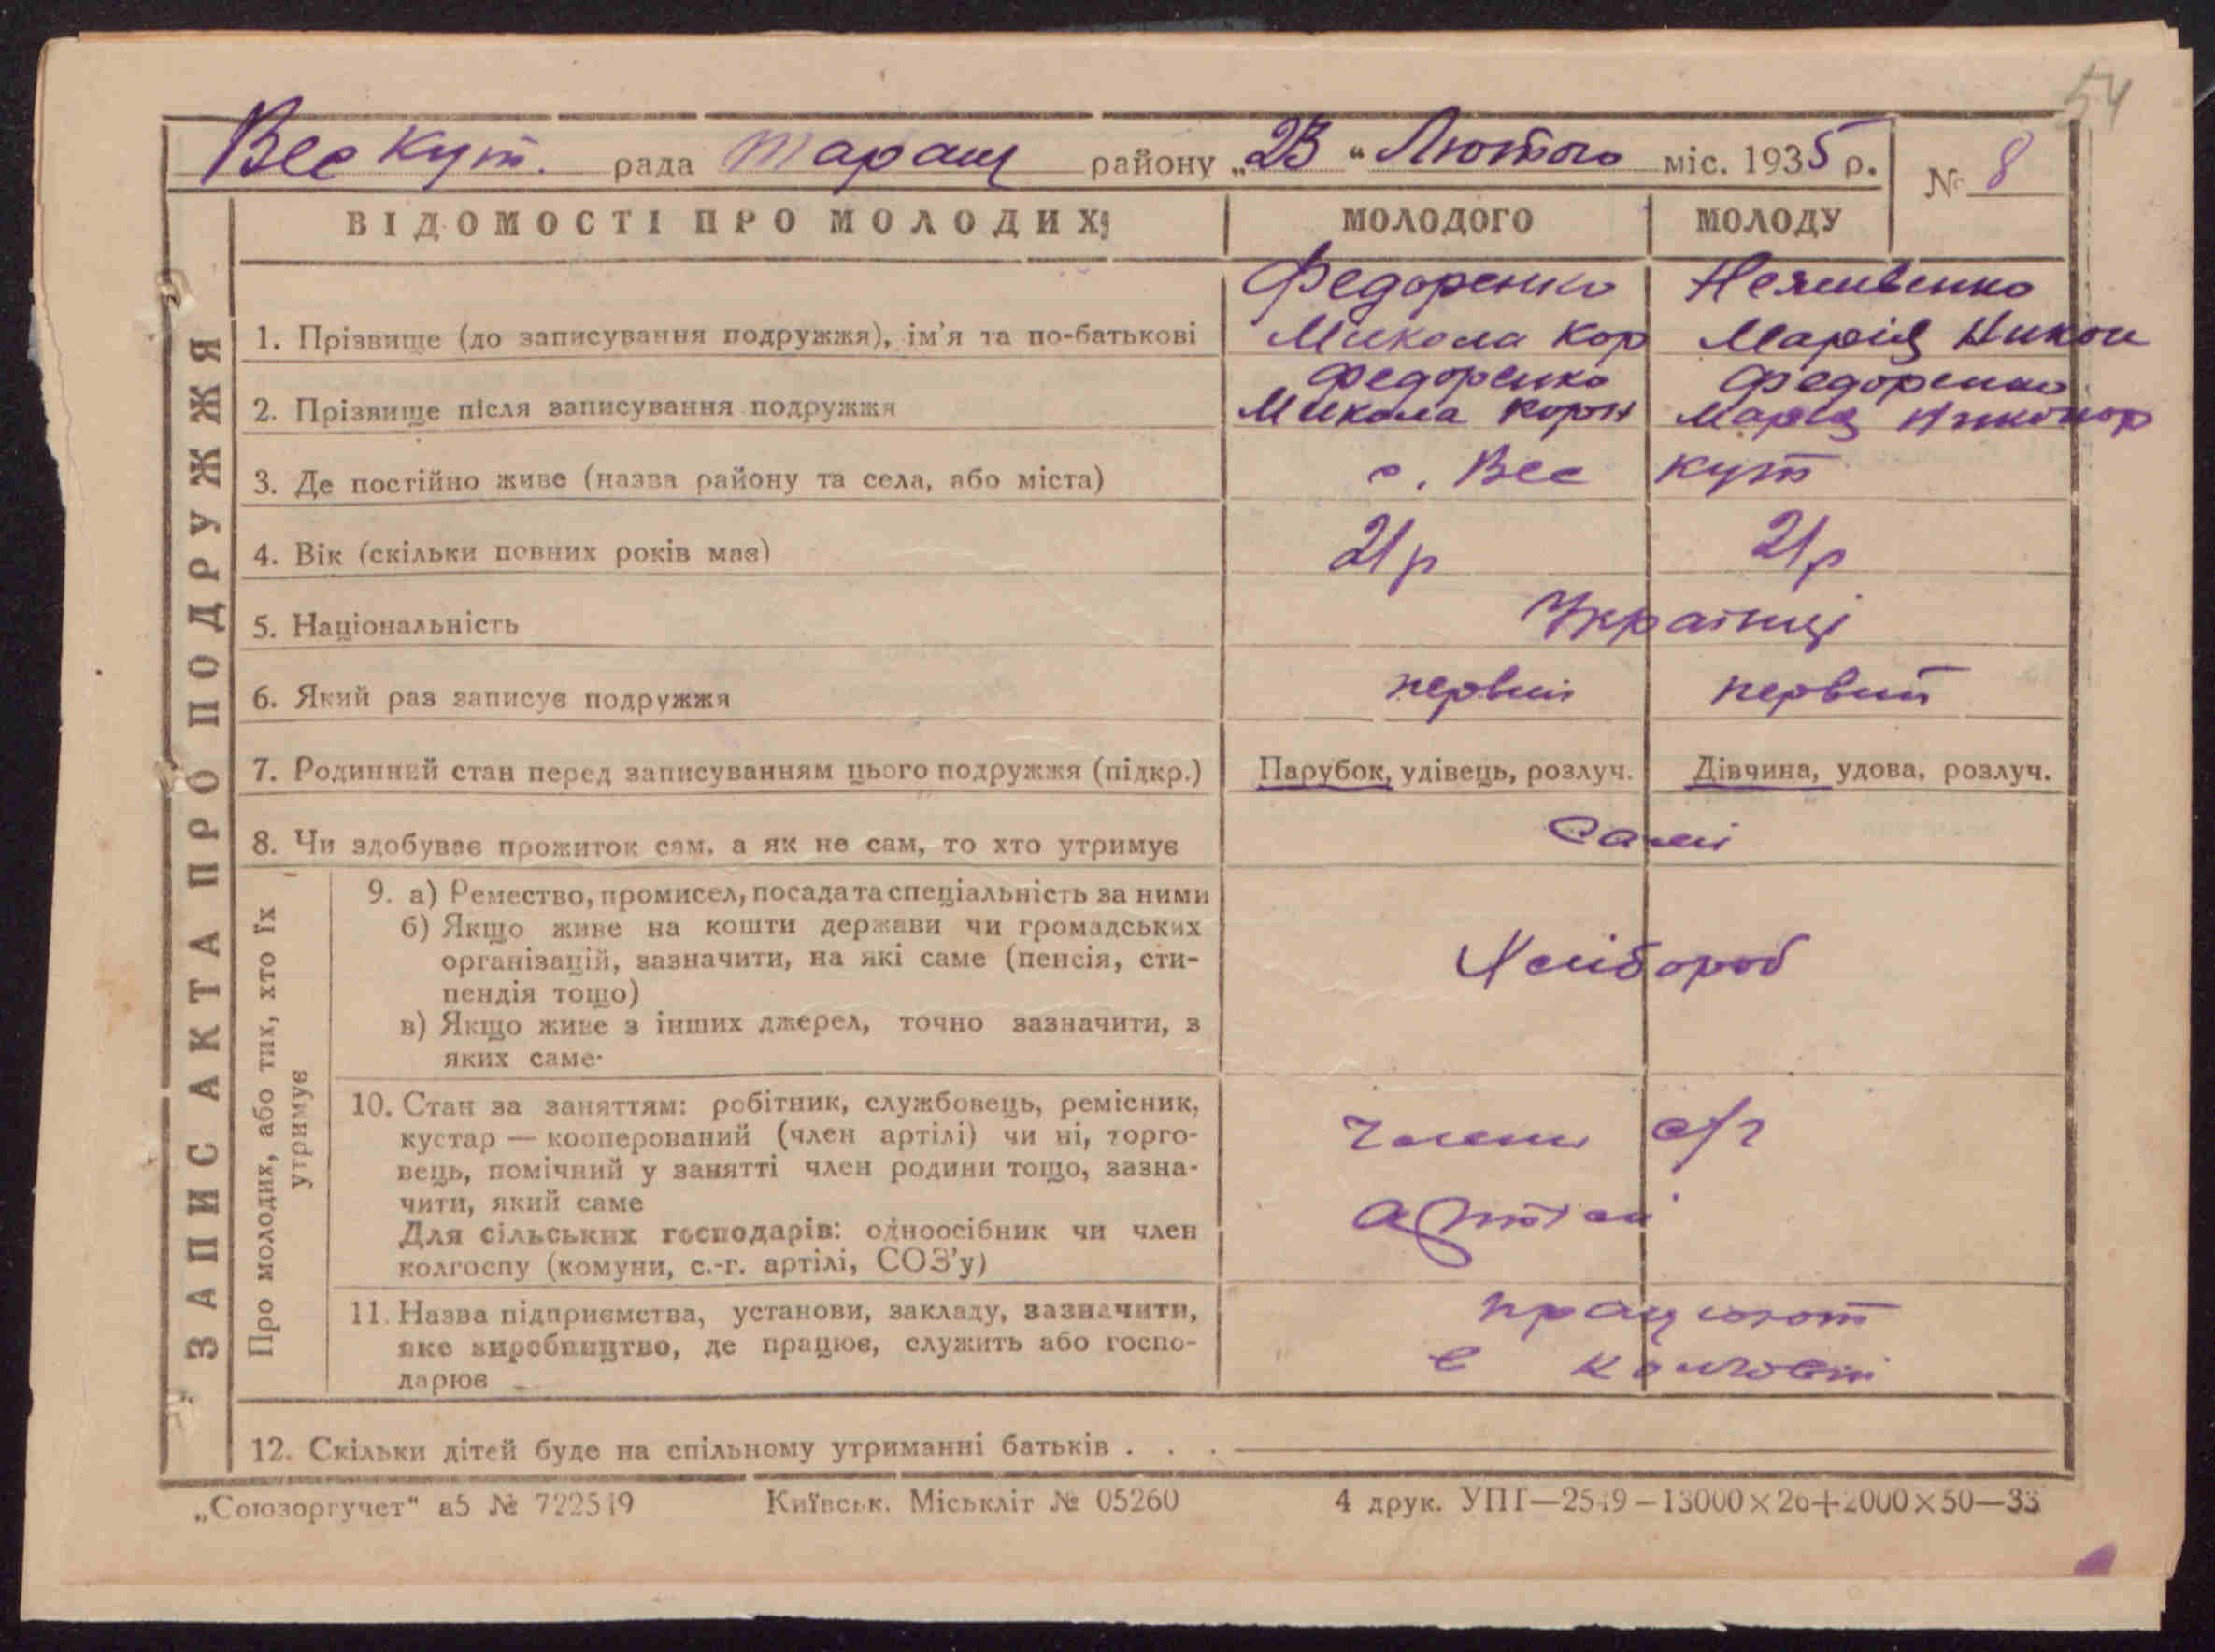 54
Вес Кут. рада Таращ району „23“ Лютого міс. 1935 р. № 8
ЗАПИС АКТА ПРО ПОДРУЖЖЯ
ВІДОМОСТІ ПРО МОЛОДИХ; МОЛОДОГО МОЛОДУ
Федоренко
1. Прізвище (до записування подружжя), ім'я та по-батькові Микола Кор Марія Никон
Федоренко Федоренко
2. Прізвище після записування подружжя Микола Корн Марія
3. Де постійно живе (назва району та села, або міста) с. Вес Кут
4. Вік (скільки повних років має) 21 р 21 р
5. Національність Українці
6. Який раз записує подружжя первий первий
7. Родинний стан перед записуванням цього подружжя (підкр.) Парубок, удівець, розлуч. Дівчина, удова, розлуч.
8. Чи здобуває прожиток сам, а як не сам, то хто утримує Самі
Про молодих, або тих, хто їх
утримує
9. а) Ремество, промисел, посада та спеціальність за ними
б) Якщо живе на кошти держави чи громадських
організацій, зазначити, на які саме (пенсія, сти-
пендія тощо)
Хлібороб
в) Якщо живе з інших джерел, точно зазначити, з
яких саме
10. Стан за заняттям: робітник, службовець, ремісник,
кустар — кооперований (член артілі) чи ні, торго- члени с/г
вець, помічний у занятті член родини тощо, зазна-
чити, який саме артілі
Для сільських господарів: одноосібник чи член
колгоспу (комуни, с.-г. артілі, СОЗ'у)
11. Назва підприємства, установи, закладу, зазначити, працюют
яке виробництво, де працює, служить або госпо- в колгоспі
дарює
12. Скільки дітей буде на спільному утриманні батьків . . .
„Союзоргучет“ а5 № 722519 Київськ. Міськліт № 05260 4 друк. УПГ—2519—13000×26+2000×50—33